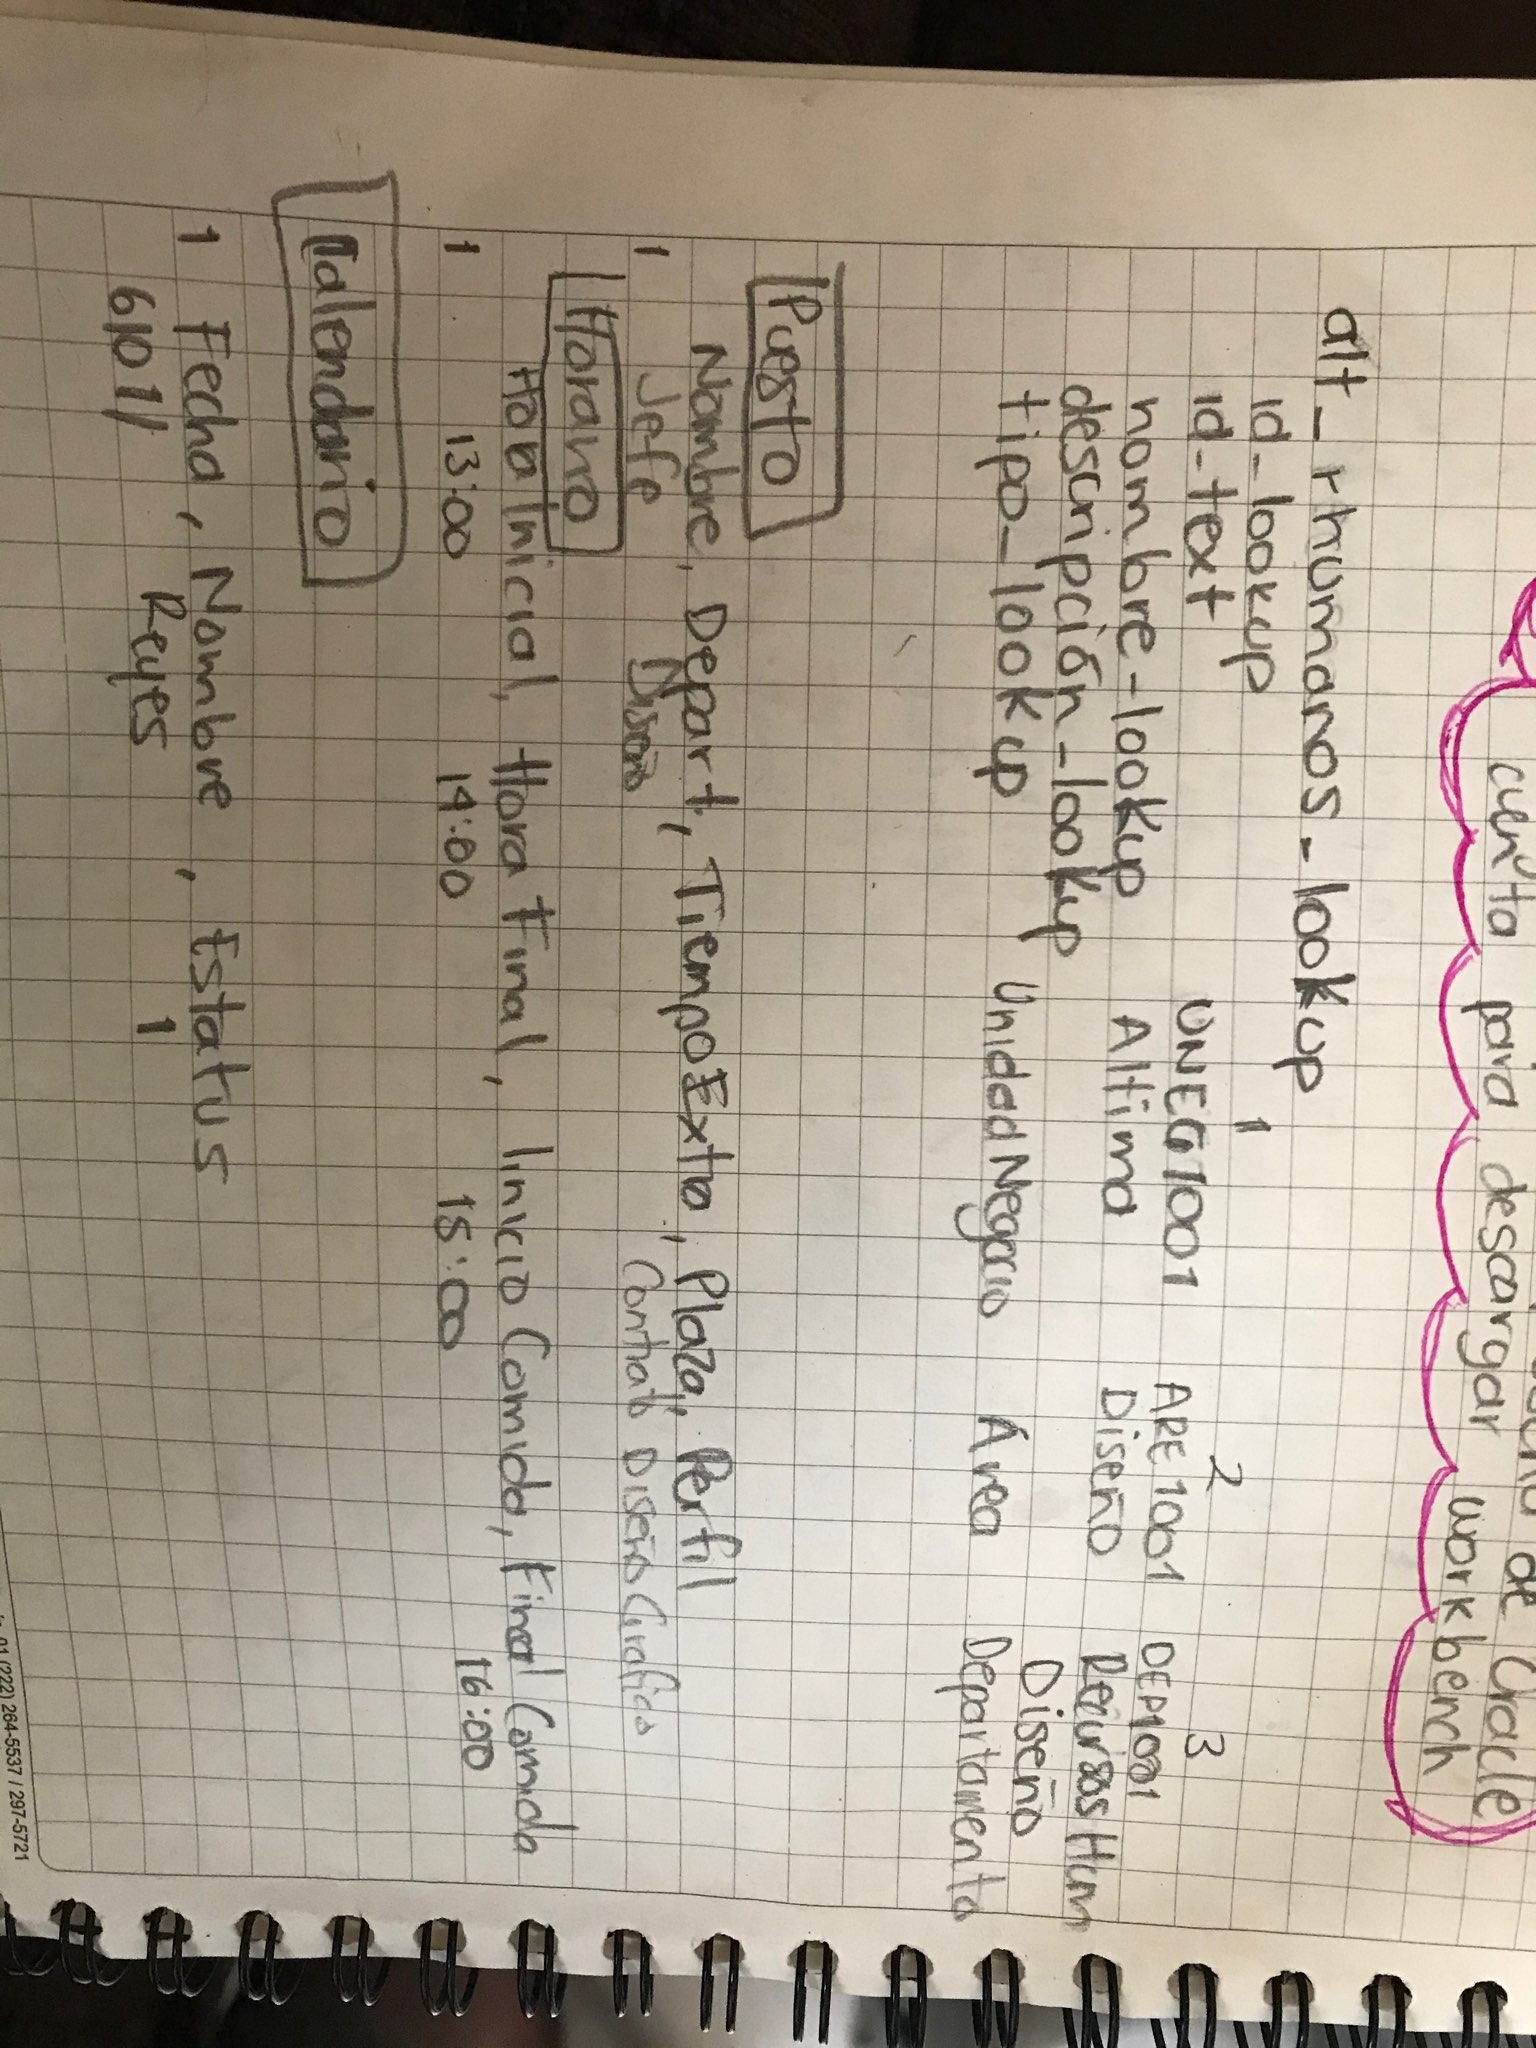 de Oracle
cuenta para descargar workbench
alt_rhumanos_lookup
id_lookup 1 2 3
id_text UNEG1001 ARE1001 DEP1001
nombre_lookup Altima Diseño Recursos Hum
descripción_lookup Diseño
tipo_lookup Unidad Negocio Área Departamento
Puesto
Nombre, Depart., Tiempo Extra, Plaza, Perfil
1 Jefe Diseño Contrato Diseño Grafico
Horario
Hora Inicial, Hora Final, Inicio Comida, Final Comida
1 13:00 14:00 15:00 16:00
Calendario
1 Fecha, Nombre, Estatus
6/01/ Reyes 1
01 (222) 264-5537 / 297-5721